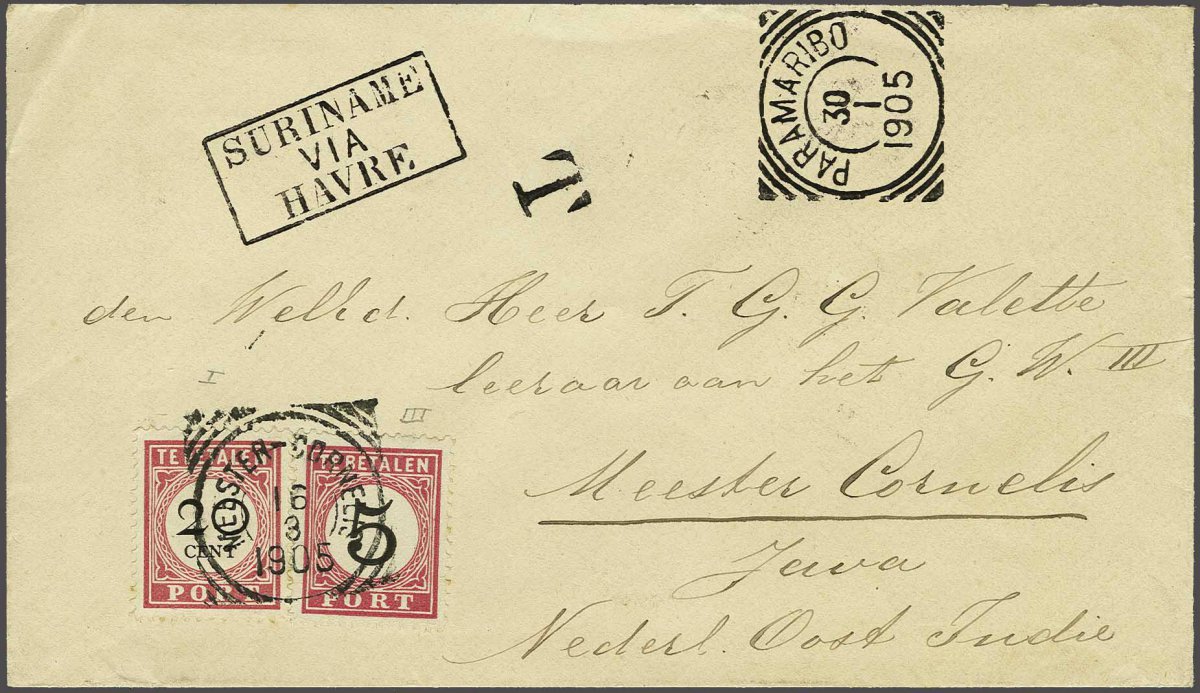 SURINAME
VIA
HAVRE
T
PARAMARIBO
30
1
1905
den Heer T. G. G. Valette
leeraar aan het G. W. III
Meester Cornelis
Java
Nederl. Oost Indie
I
III
TE BETALEN
20
CENT
PORT
TE BETALEN
5
PORT
MEESTER-CORNELIS
16
3
1905